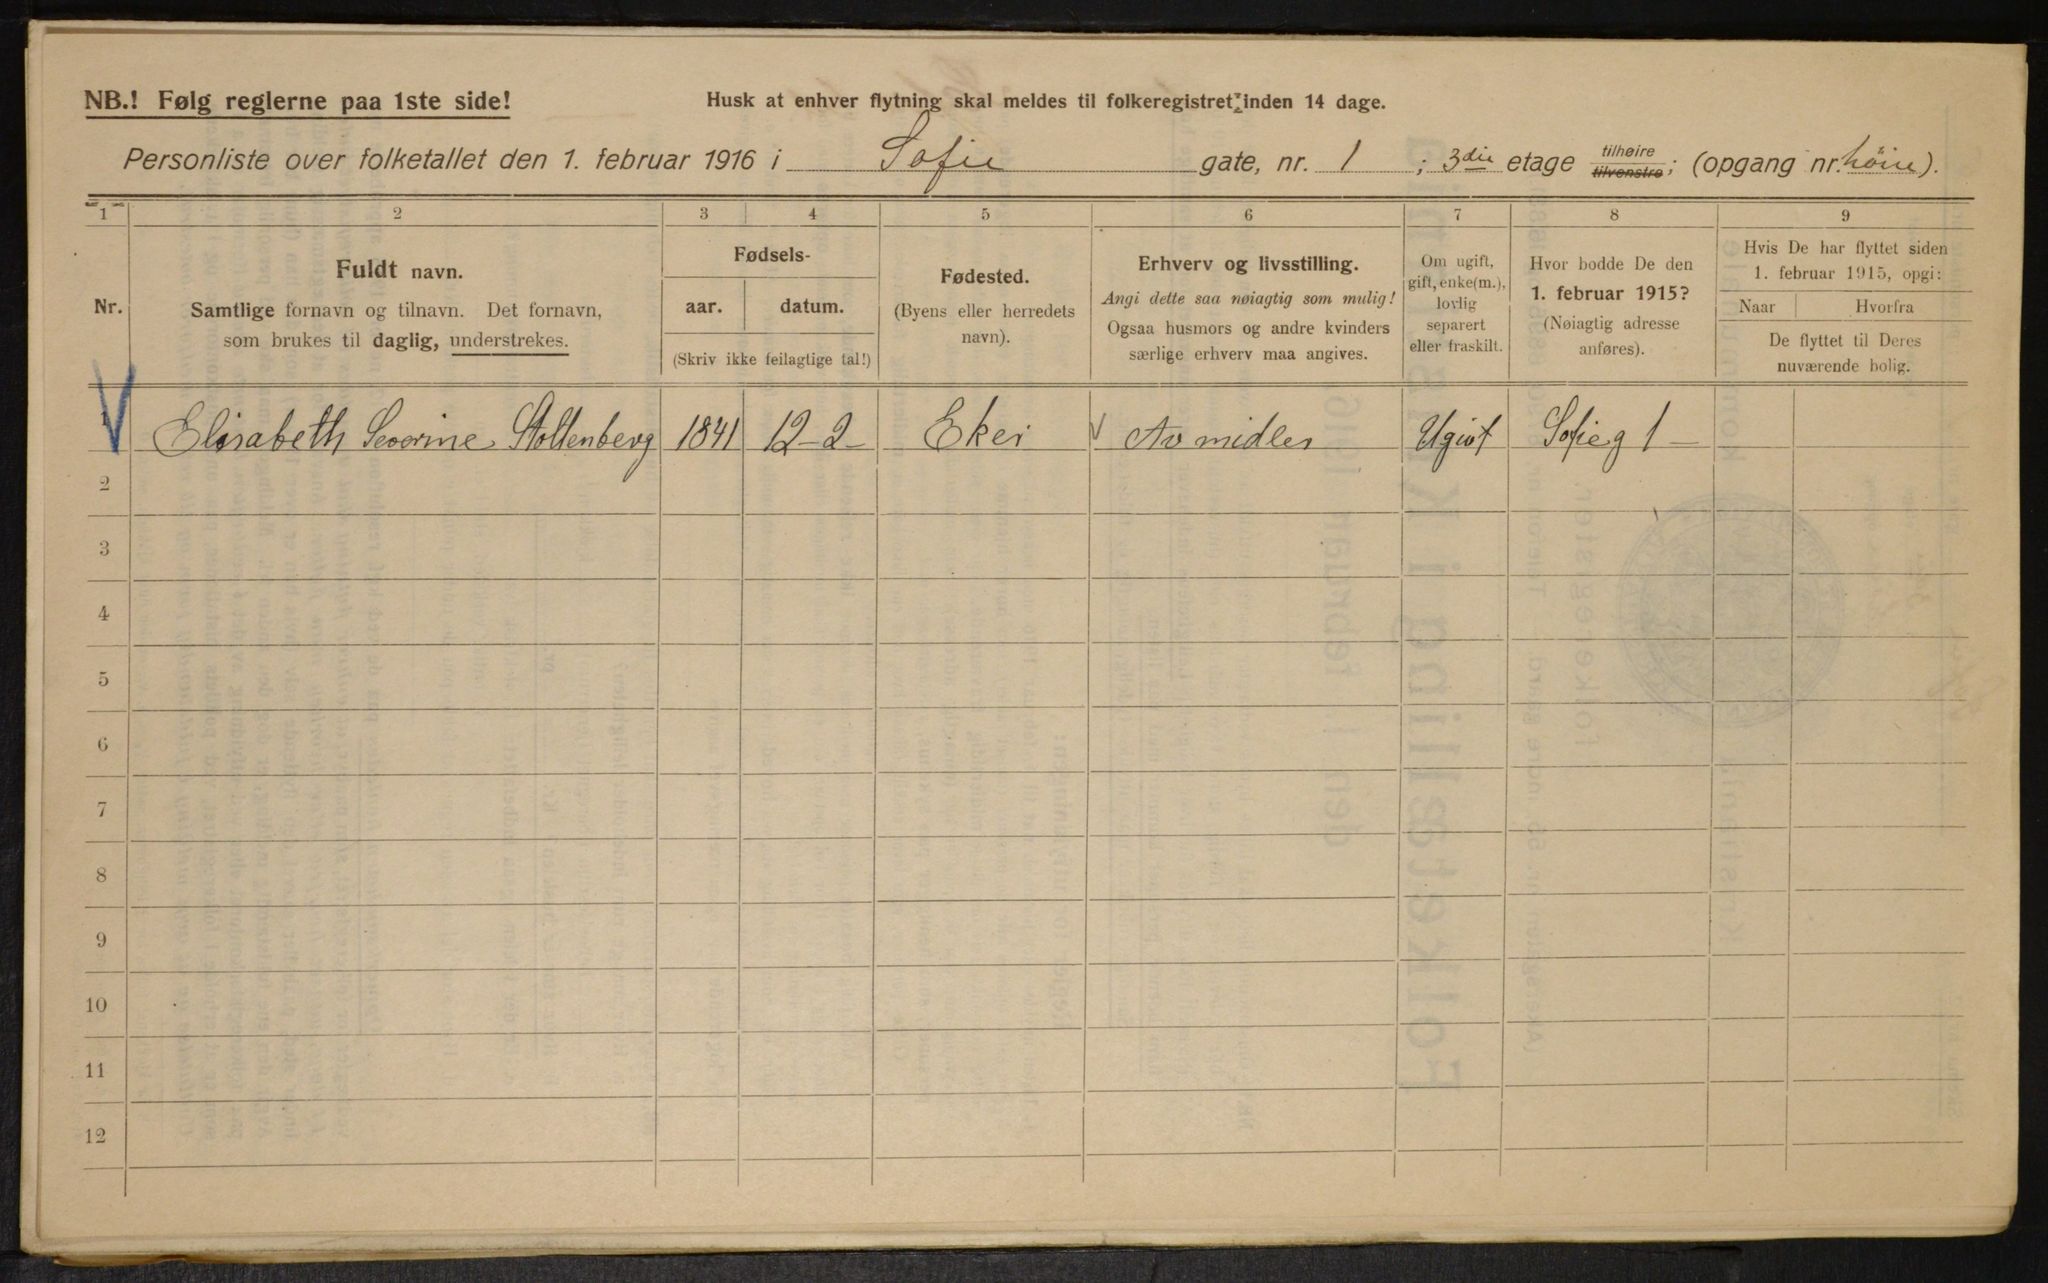 NB.! Følg reglerne paa 1ste side!
Husk at enhver flytning skal meldes til folkeregistret inden 14 dage.
Personliste over folketallet den 1. februar 1916 i Sofie gate, nr. 1 ; 3die etage tilhøire tilvenstre; (opgang nr. höire).
1 2 3 4 5 6 7 8 9
Nr.
Fuldt navn.
Samtlige fornavn og tilnavn. Det fornavn,
som brukes til daglig, understrekes.
Fødsels-
aar. datum.
(Skriv ikke feilagtige tal!)
Fødested.
(Byens eller herredets
navn).
Erhverv og livsstilling.
Angi dette saa nøiagtig som mulig!
Ogsaa husmors og andre kvinders
særlige erhverv maa angives.
Om ugift,
gift, enke(m.),
lovlig
separert
eller fraskilt.
Hvor bodde De den
1. februar 1915?
(Nøiagtig adresse
anføres).
Hvis De har flyttet siden
1. februar 1915, opgi:
Naar Hvorfra
De flyttet til Deres
nuværende bolig.
1 Elisabeth Severine Stoltenberg 1841 12-2- Eker Av midler Ugift Sofieg 1 -
2
3
4
5
6
7
8
9
10
11
12